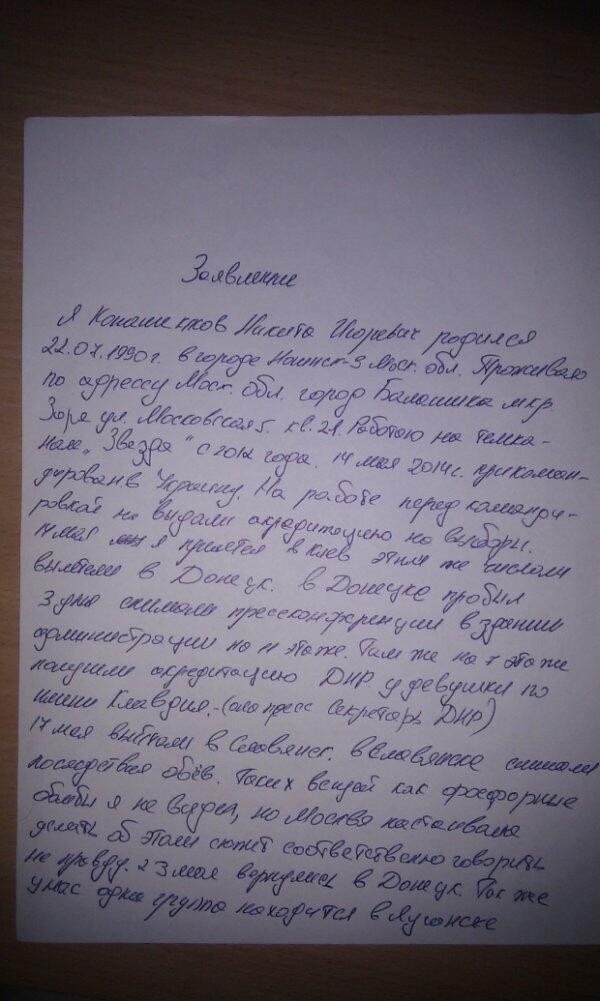 Заявление
Я Конашенков Никита Игоревич родился
22.07.1990г. в городе Ногинск-9 Моск. обл. Проживаю
по адрессу Моск. обл. город Балашиха мкр.
Заря ул. Московская 5. кв. 21. Работаю на телека-
нале „Звезда" с 2012 года. 14 мая 2014г. прикоман-
дирован в Украину. На работе перед команди-
ровкой не выдали акредитацию на выборы.
14 мая я прилетел в Киев этим же числом
вылетели в Донецк. в Донецке пробыл
3 дня снимали прессконференции в здании
администрации на 11 этаже. Там же на 7 этаже
получили акредитацию ДНР у девушки по
имени Клавдия.-(она пресс Секретарь ДНР)
17 мая выехали в Славянск. в Славянске снимали
последствия обоев. Таких вещей как фосфорные
бомбы я не видел, но Москва настаивала
делать об этом сюжет соответственно говорить
не правду. 23 мая вернулись в Донецк. Так же
у нас одна группа находится в Луганске